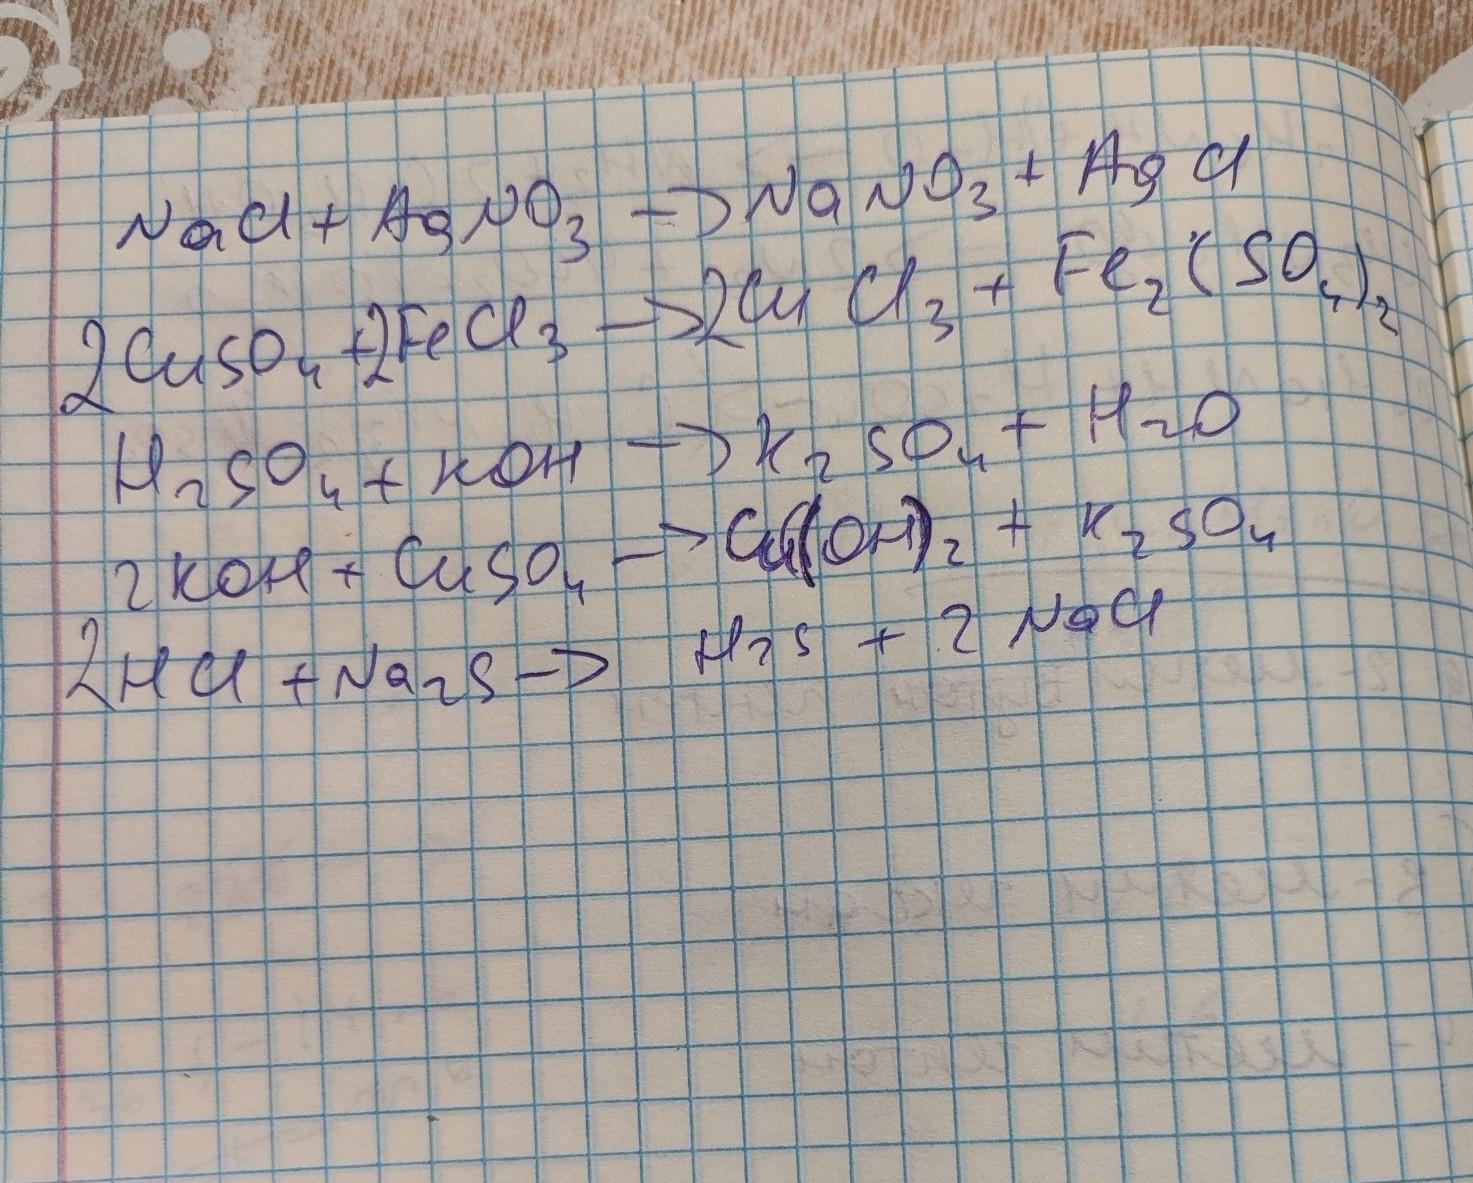 NaCl + AgNO₃ → NaNO₃ + AgCl
2CuSO₄ + 2FeCl₃ → 2CuCl₃ + Fe₂(SO₄)₂
H₂SO₄ + KOH → K₂SO₄ + H₂O
2KOH + CuSO₄ → Cu(OH)₂ + K₂SO₄
2HCl + Na₂S → H₂S + 2NaCl